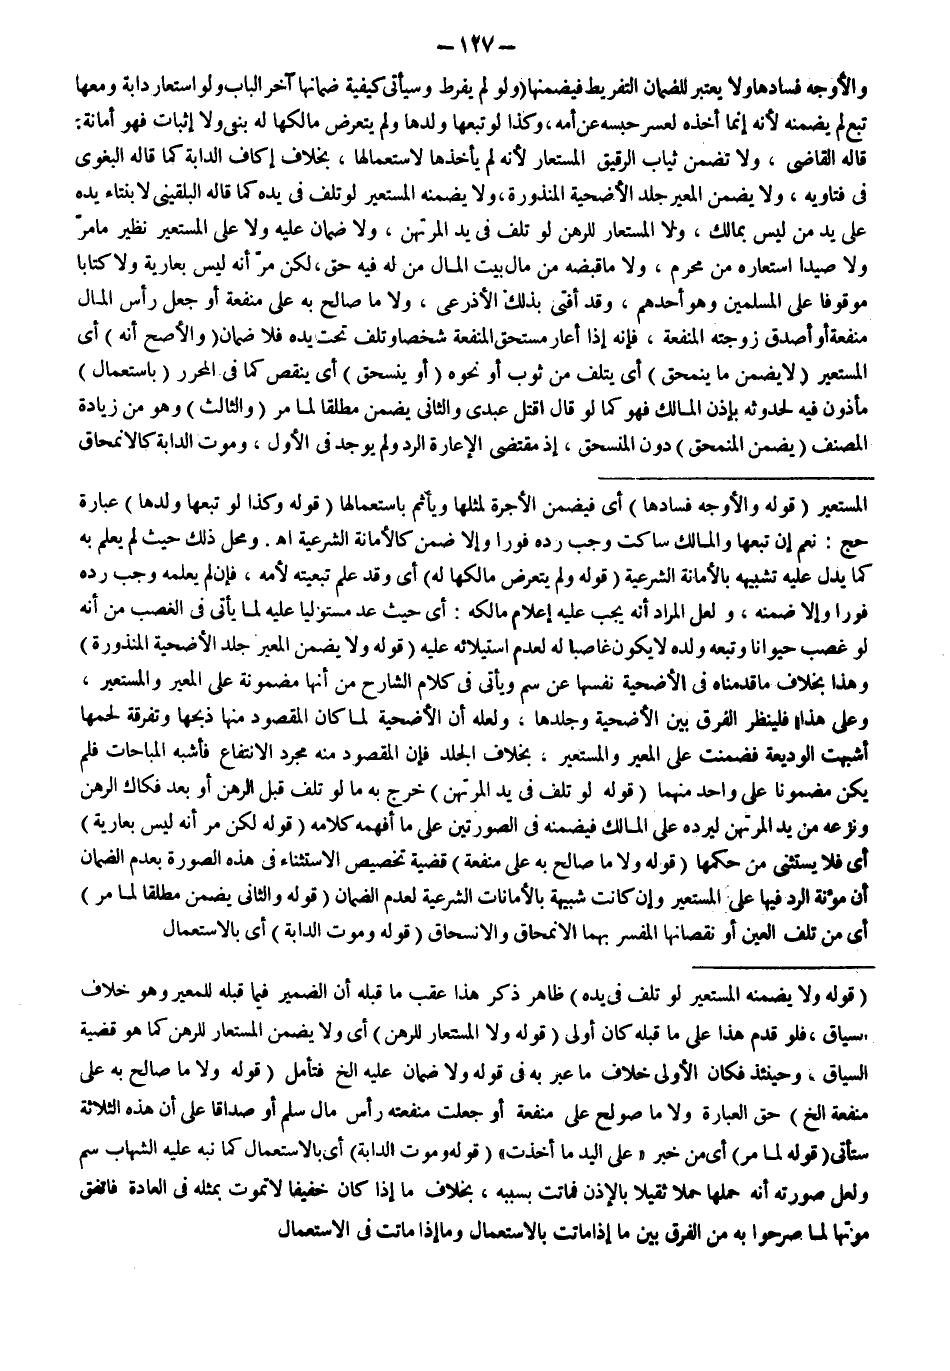 — ١٢٧ —
والأوجه فسادها ولا يعتبر للضمان التفريط فيضمنها (ولو لم يفرط وسيأتى كيفية ضمانها آخر الباب ولو استعار دابة ومعها
تبع لم يضمنه لأنه إنما أخذه لعسر حبسه عن أمه ، وكذا لو تبعها ولدها ولم يتعرض مالكها له بنفى ولا إثبات فهو أمانة :
قاله القاضى ، ولا تضمن ثياب الرقيق المستعار لأنه لم يأخذها لاستعمالها ، بخلاف إكاف الدابة كما قاله البغوى
فى فتاويه ، ولا يضمن المعير جلد الأضحية المنذورة ، ولا يضمنه المستعير لو تلف فى يده كما قاله البلقينى لابتناء يده
على يد من ليس بمالك ، ولا المستعار للرهن لو تلف فى يد المرتهن ، ولا ضمان عليه ولا على المستعير نظير مامرّ
ولا صيدا استعاره من محرم ، ولا ماقبضه من مال بيت المال من له فيه حق ، لكن مرّ أنه ليس بعارية ولا كتابا
موقوفا على المسلمين وهو أحدهم ، وقد أفتى بذلك الأذرعى ، ولا ما صالح به على منفعة أو جعل رأس المال
منفعة أو أصدق زوجته المنفعة ، فإنه إذا أعار مستحق المنفعة شخصا وتلف تحت يده فلا ضمان ( والأصح أنه ) أى
المستعير ( لايضمن ما ينمحق ) أى يتلف من ثوب أو نحوه ( أو ينسحق ) أى ينقص كما فى المحرر ( باستعمال )
مأذون فيه لحدوثه بإذن المالك فهو كما لو قال اقتل عبدى والثانى يضمن مطلقا لما مر ( والثالث ) وهو من زيادة
المصنف ( يضمن المنمحق ) دون المنسحق ، إذ مقتضى الإعارة الرد ولم يوجد فى الأول ، وموت الدابة كالانمحاق
المستعير ( قوله والأوجه فسادها ) أى فيضمن الأجرة لمثلها ويأثم باستعمالها ( قوله وكذا لو تبعها ولدها ) عبارة
حج : نعم إن تبعها والمالك ساكت وجب رده فورا وإلا ضمن كالأمانة الشرعية اه . ومحل ذلك حيث لم يعلم به
كما يدل عليه تشبيهه بالأمانة الشرعية ( قوله ولم يتعرض مالكها له) أى وقد علم تبعيته لأمه ، فإن لم يعلمه وجب رده
فورا وإلا ضمنه ، و لعل المراد أنه يجب عليه إعلام مالكه : أى حيث عد مستوليا عليه لما يأتى فى الغصب من أنه
لو غصب حيوانا وتبعه ولده لايكون غاصبا له لعدم استيلائه عليه ( قوله ولا يضمن المعير جلد الأضحية المنذورة )
وهذا بخلاف ماقدمناه فى الأضحية نفسها عن سم ويأتى فى كلام الشارح من أنها مضمونة على المعير والمستعير ،
وعلى هذا فلينظر الفرق بين الأضحية وجلدها ، ولعله أن الأضحية لما كان المقصود منها ذبحها وتفرقة لحمها
أشبهت الوديعة فضمنت على المعير والمستعير ، بخلاف الجلد فإن المقصود منه مجرد الانتفاع فأشبه المباحات فلم
يكن مضمونا على واحد منهما ( قوله لو تلف فى يد المرتهن ) خرج به ما لو تلف قبل الرهن أو بعد فكاك الرهن
ونزعه من يد المرتهن ليرده على المالك فيضمنه فى الصورتين على ما أفهمه كلامه ( قوله لكن مر أنه ليس بعارية )
أى فلا يستثنى من حكمها ( قوله ولا ما صالح به على منفعة ) قضية تخصيص الاستثناء فى هذه الصورة بعدم الضمان
أن مؤنة الرد فيها على المستعير وإن كانت شبيهة بالأمانات الشرعية لعدم الضمان ( قوله والثانى يضمن مطلقا لما مر )
أى من تلف العين أو نقصانها المفسر بهما الانمحاق والانسحاق ( قوله وموت الدابة ) أى بالاستعمال
( قوله ولا يضمنه المستعير لو تلف فى يده ) ظاهر ذكر هذا عقب ما قبله أن الضمير فيما قبله للمعير وهو خلاف
السياق ، فلو قدم هذا على ما قبله كان أولى ( قوله ولا المستعار للرهن ) أى ولا يضمن المستعار للرهن كما هو قضية
السياق ، وحينئذ فكان الأولى خلاف ما عبر به فى قوله ولا ضمان عليه الخ فتأمل ( قوله ولا ما صالح به على
منفعة الخ ) حق العبارة ولا ما صولح على منفعة أو جعلت منفعته رأس مال سلم أو صداقا على أن هذه الثلاثة
ستأتى ( قوله لما مر) أى من خبر « على اليد ما أخذت» ( قوله وموت الدابة) أى بالاستعمال كما نبه عليه الشهاب سم
ولعل صورته أنه حملها حملا ثقيلا بالإذن فماتت بسببه ، بخلاف ما إذا كان خفيفا لاتموت بمثله فى العادة فاتفق
موتها لما صرحوا به من الفرق بين ما إذا ماتت بالاستعمال وما إذا ماتت فى الاستعمال